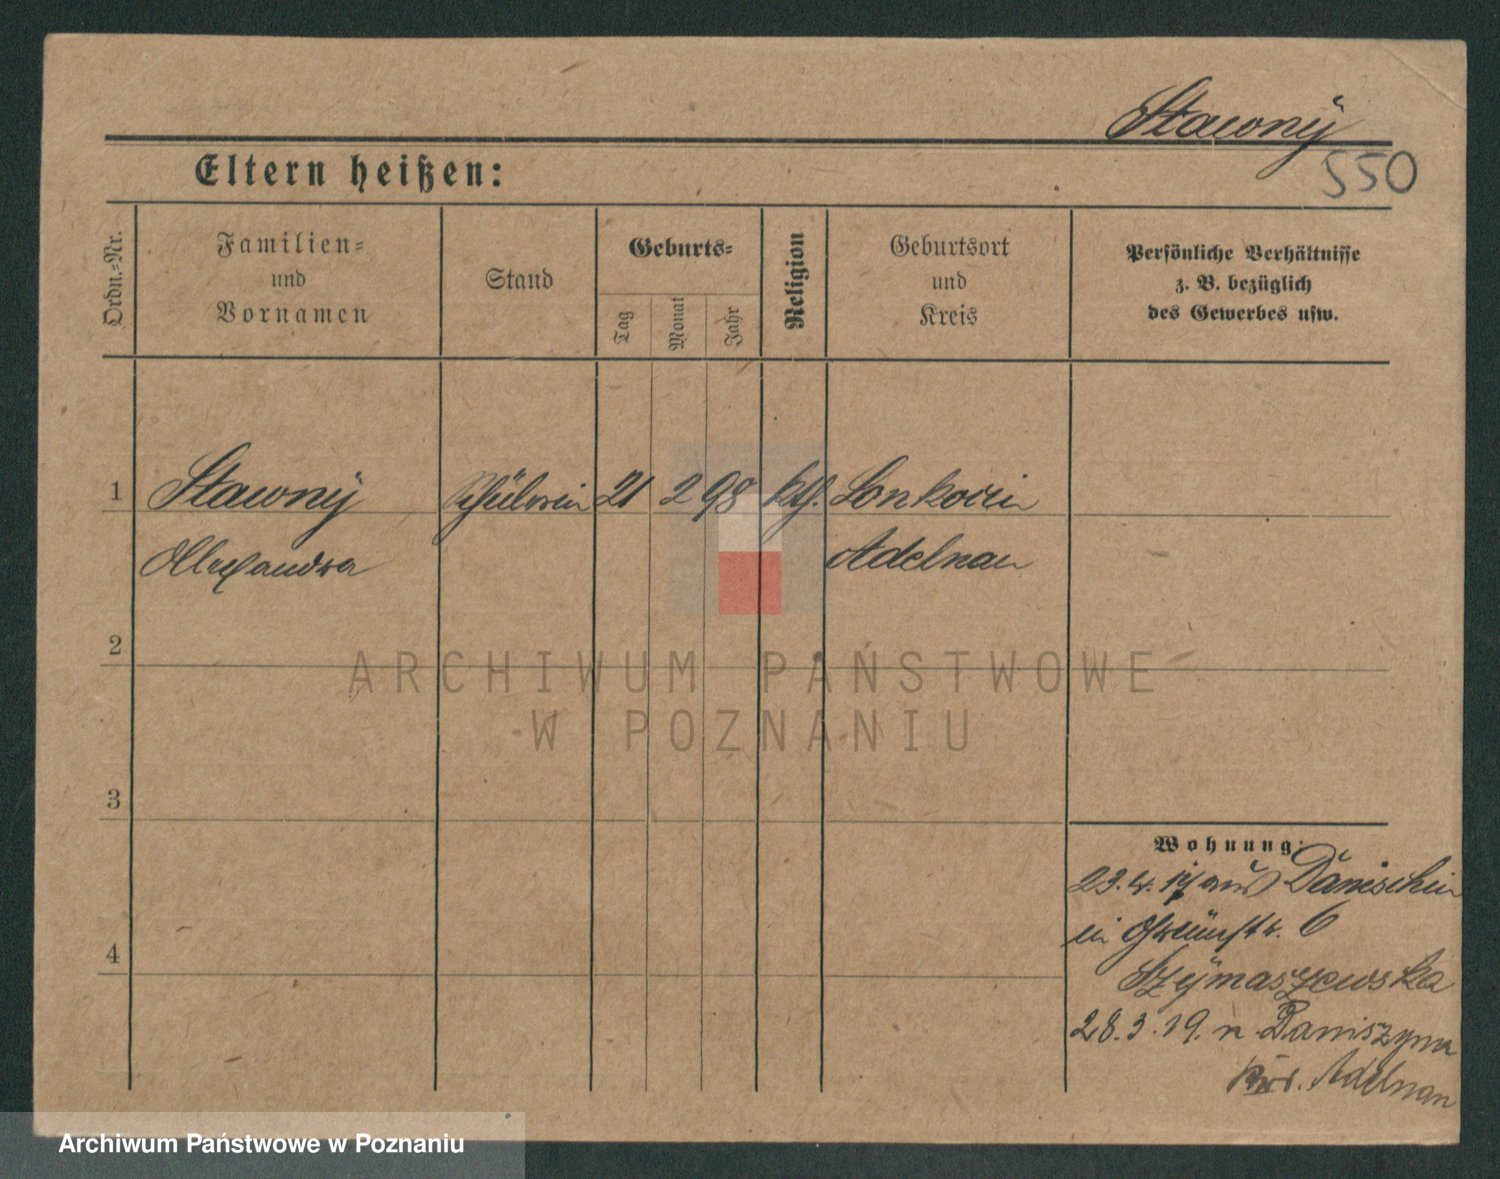 Stawny
550
Eltern heißen:
Ordn.-Nr.
Familien-
und
Vornamen
Stand
Geburts-
Tag
Monat
Jahr
Religion
Geburtsort
und
Kreis
Persönliche Verhältnisse
z. B. bezüglich
des Gewerbes usw.
1 Stawny Schülerin 21 2 98 kth.
Alexandra Adelnau
2
ARCHIWUM PAŃSTWOWE
W POZNANIU
3
4
Wohnung:
23.4.17 aus Danischin
in 6
Szymaszewska
28.3.19. n Daniszyna
Krs. Adelnau
Archiwum Państwowe w Poznaniu